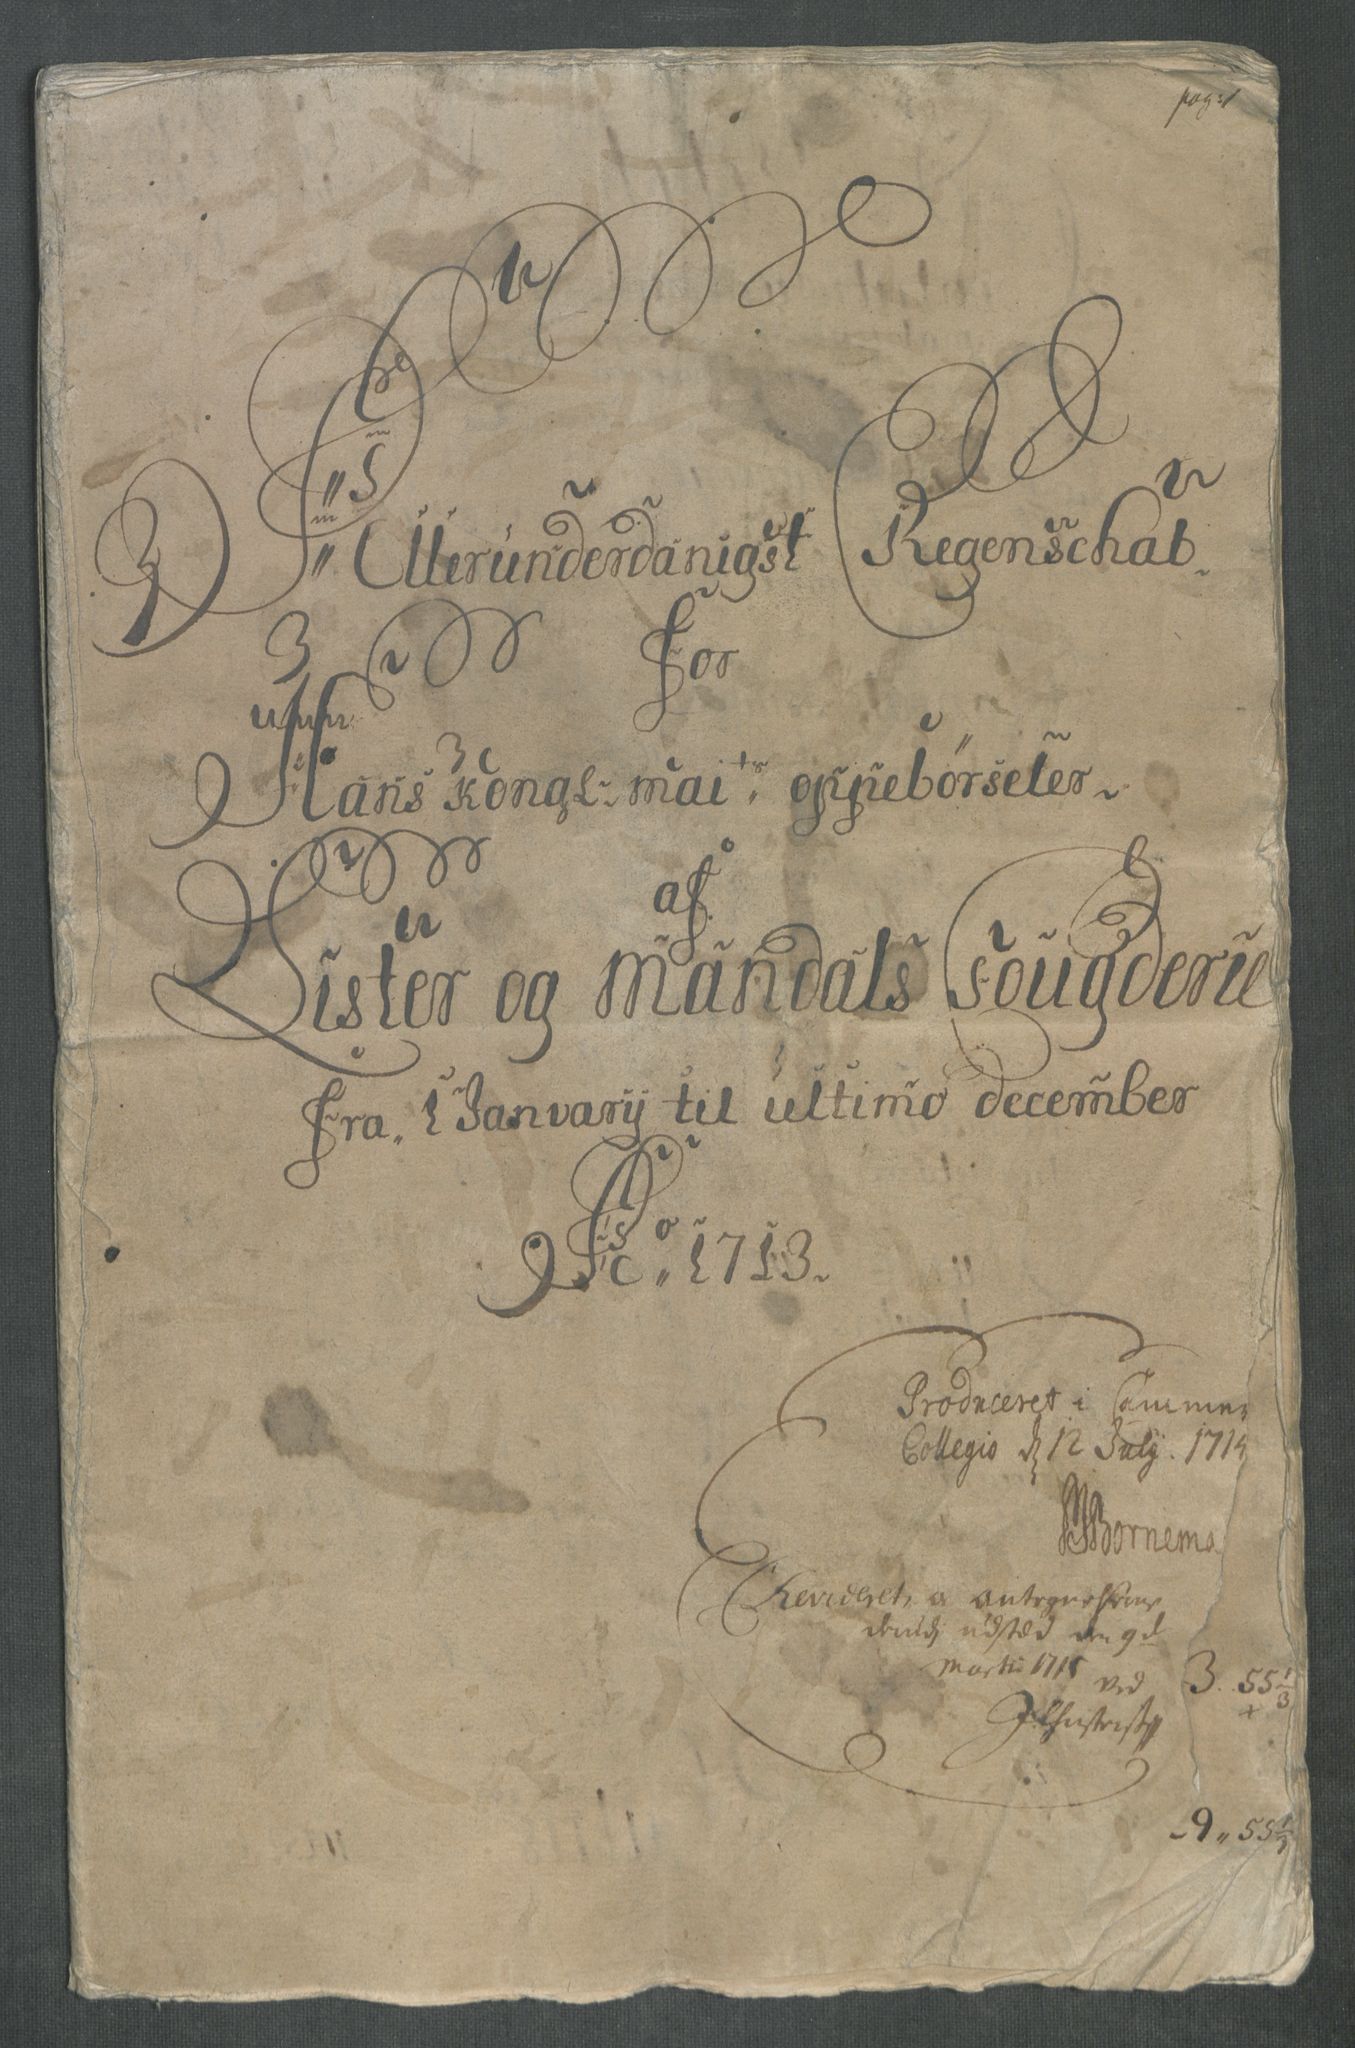 pag: 1
Allerunderdanigst Regenschab
for
Hans Kongl. mai.ts oppebörseler
af
Lister og Mandals fougderie
fra 1 Janvarij til ultimo december
Ao 1713
Produceret i Cammer
Collegio d 12 Julij. 1714
Bornema
Revideret, a antegnelserne
udstæd den 9de
Martii 1715 ved
3. 55 1/3
+
9 " 55 1/3